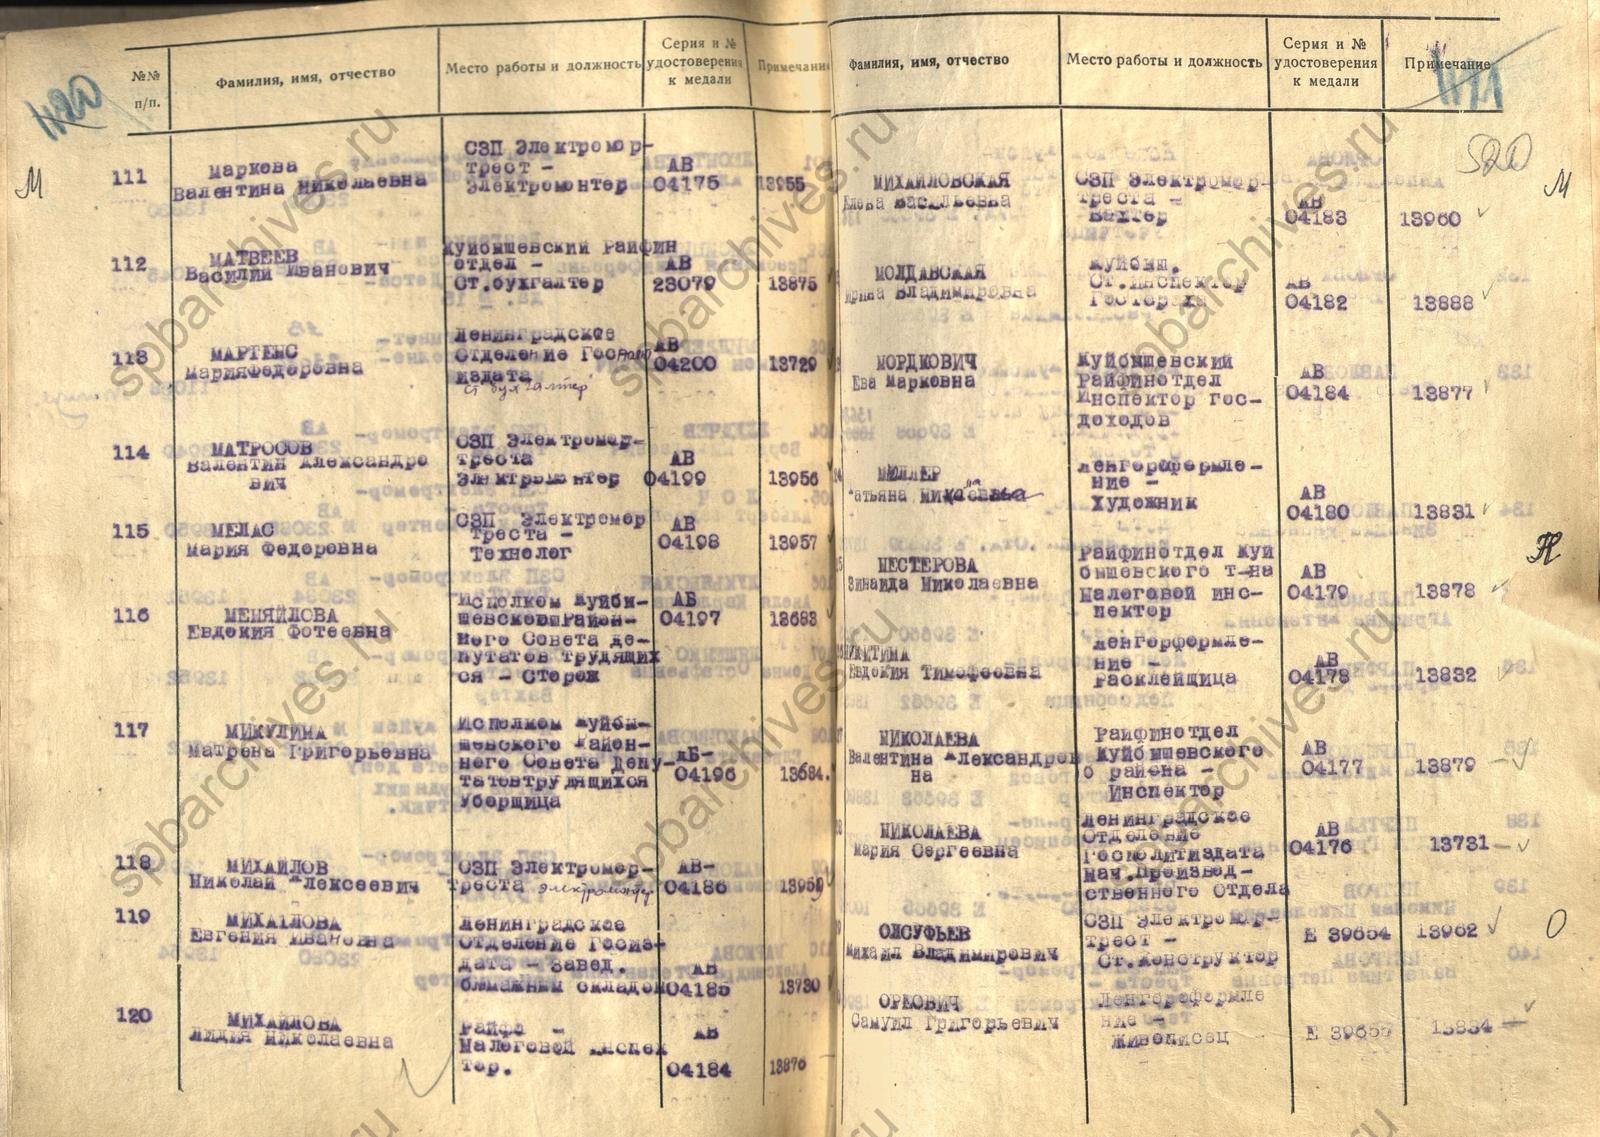 №№ п/п.
Фамилия, имя, отчество
Место работы и должность
Серия и № удостоверения к медали
Примечание
М
111
Маркова
Валентина Николаевна
СЗП Электромор-
трест -
Электромонтер
АВ
04175
13955
112
МАТВЕЕВ
Василий Иванович
Куйбышевский Райфин
отдел -
Ст.бухгалтер
АВ
23079
13875
113
МАРТЕНС
МарияФедоровна
Ленинградское
Отделение Гос
издата
ст бухгалтер
АВ
04200
13729
114
МАТРОСОВ
Валентин Александро
вич
СЗП Электромор-
треста
Электромонтер
АВ
04199
13956
115
МЕЛАС
Мария Федоровна
СЗП Электромор
треста -
Технолог
АВ
04198
13957
116
МЕНЯЙЛОВА
Евдокия Фотеевна
Исполком Куйбы-
шевскогоРайон-
ного Совета де-
путатов трудящих
ся - Сторож
АВ
04197
13683
117
МИКУЛИНА
Матрена Григорьевна
Исполком Куйбы-
шевского Район-
ного Совета Депу-
татовтрудящихся
Уборщица
АВ-
04196
13684.
118
МИХАЙЛОВ
Николай Алексеевич
СЗП Электромор-
треста электромонтер
АВ-
04186
13959
119
МИХАЙЛОВА
Евгения Ивановна
Ленинградское
Отделение Госиз-
дата - Завед.
бумажным складом
АВ
04185
13730
120
МИХАЙЛОВА
Лидия Николаевна
Райфо -
Налоговой Инспек
тор.
АВ
04184
13876
Фамилия, имя, отчество
Место работы и должность
Серия и № удостоверения к медали
Примечание
520
МИХАЙЛОВСКАЯ
Елена Васильевна
СЗП Электромор-
треста -
Вахтер
АВ
04183
13960
М
МОЛДАВСКАЯ
Ирина Владимировна
Куйбыш.
Ст.Инспектор
Госстраха
АВ
04182
13888
МОРДКОВИЧ
Ева Марковна
Куйбышевский
Райфинотдел
Инспектор Гос-
доходов
АВ
04184
13877
МЮЛЛЕР
Татьяна
Ленгороформле-
ние -
Художник
АВ
04180
13831
Н
НЕСТЕРОВА
Зинаида Николаевна
Райфинотдел Куй
бышевского т-на
Налоговой инс-
пектор
АВ
04179
13878
НИКИТИНА
Евдокия Тимофеевна
Ленгороформле-
ние -
Расклейщица
АВ
04178
13832
НИКОЛАЕВА
Валентина Александров
на
Райфинотдел
Куйбышевского
района -
Инспектор
АВ
04177
13879
НИКОЛАЕВА
Мария Сергеевна
Ленинградское
Отделение
Госполитиздата
Нач.Производ-
ственного Отдела
АВ
04176
13731
ОЛСУФЬЕВ
Михаил Владимирович
СЗП Электромор-
трест -
Ст.Конструктор
Е 39654
13962
О
ОРКОВИЧ
Самуил Григорьевич
Ленгороформле
ние -
Живописец
Е 39655
13834
spbarchives.ru
spbarchives.ru
spbarchives.ru
spbarchives.ru
spbarchives.ru
spbarchives.ru